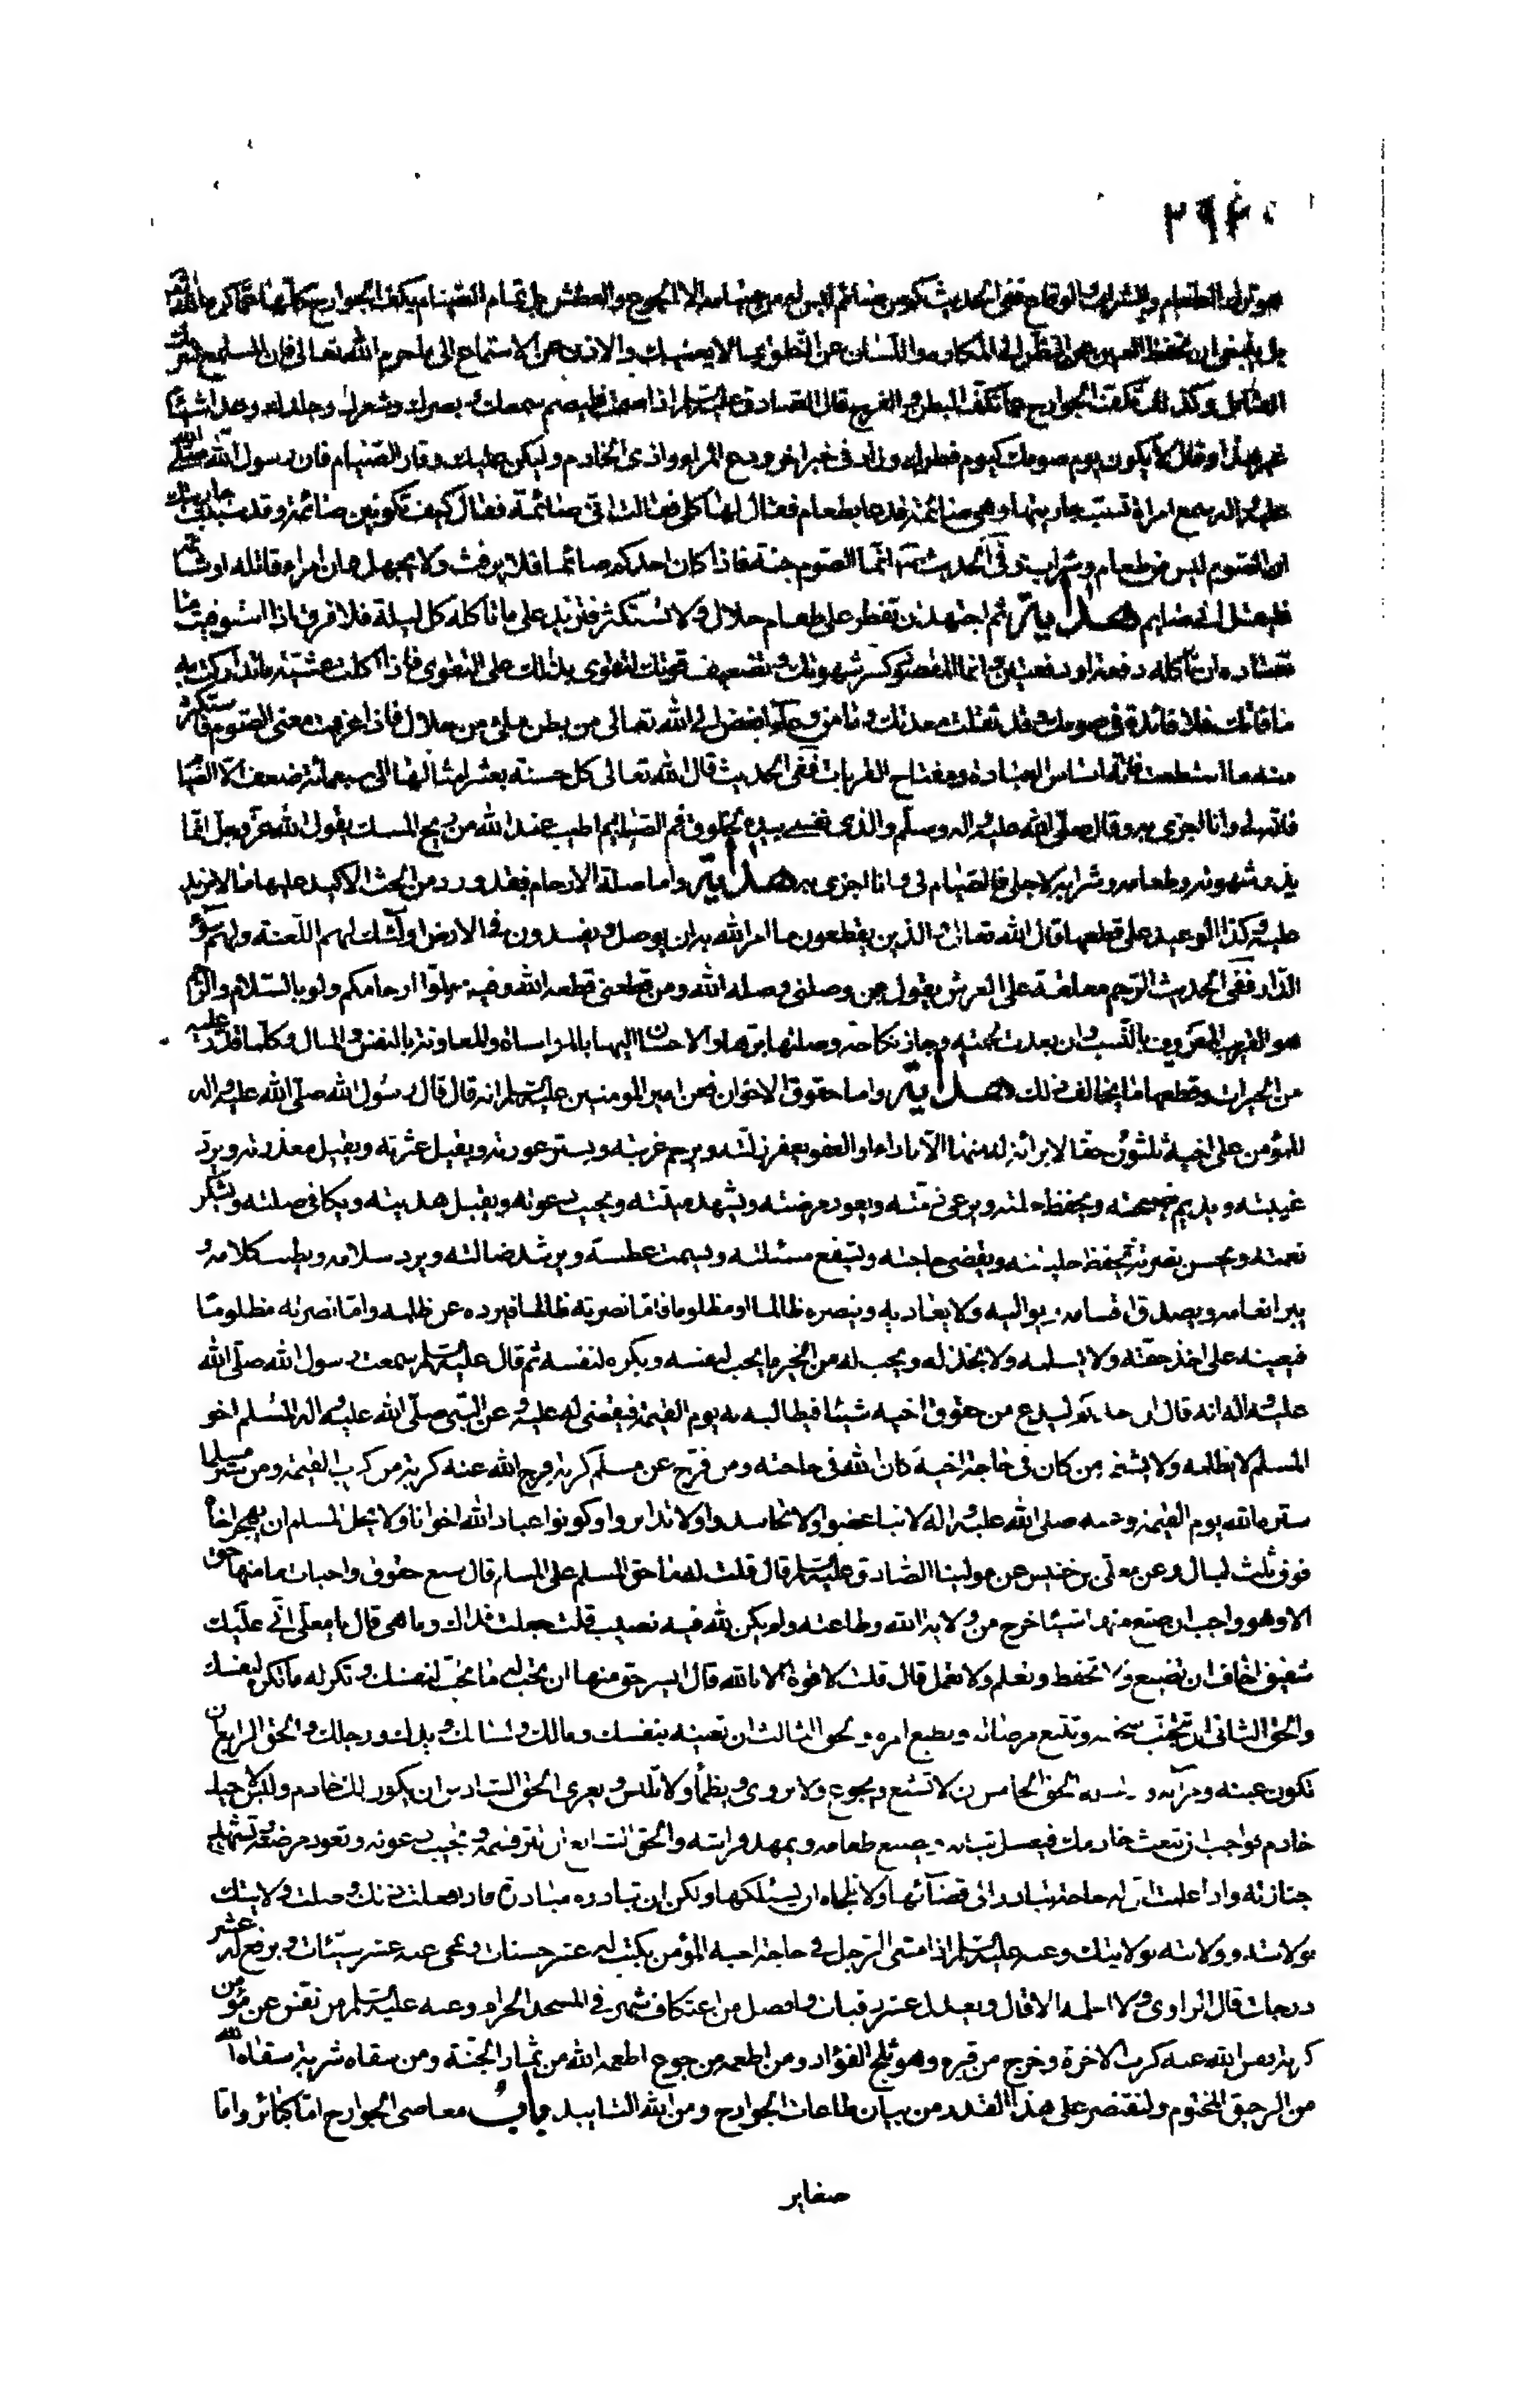 ٢٩٤
هو ترك الطعام والشراب والوقاع ففى الحديث كم من صائم ليس له من صيامه الا الجوع والعطش بل تمام الصيام بكف الجوارح كلها عما كره الله
بل ينبغى ان تحفظ العين عن النظر الى المكاره واللسان عن النطق بما لا يعنيك والاذن عن الاستماع الى ما حرم الله تعالى فان المستمع شريك
القائل وكذلك تكف الجوارح كما تكف البطن والفرج قال الصادق عليه السلم اذا صمت فليصم سمعك وبصرك وشعرك وجلدك وعد اشياء
غير هذا وقال لا يكون يوم صومك كيوم فطرك وزاد فى خبر اخر ودع المراء واذى الخادم وليكن عليك وقار الصيام فان رسول الله صلى الله
عليه واله سمع امراة تسب جاريتها وهى صائمة فدعا بطعام فقال لها كلى فقالت انى صائمة فقال كيف تكونين صائمة وقد سببت جاريتك
ان الصوم ليس من طعام وشراب وفى الحديث انما الصوم جنة فاذا كان احدكم صائما فلا يرفث ولا يجهل وان امرء قاتله او شاتمه
فليقل انى صايم هداية ثم اجتهد ان تفطر على طعام حلال ولا تستكثر فتزيد على ما تاكله كل ليلة فلا فرق اذا استوفيت ما
تعتاده ان تاكله دفعة او دفعتين وانما المقصود كسر شهوتك وتضعيف قوتك لتقوى بذلك على التقوى فاذا اكلت عشية ما تداركت به
ما فاتك فلا فائدة فى صومك وقد ثقلت معدتك وما من وعاء ابغض الى الله تعالى من بطن ملئ من حلال فاذا عرفت معنى الصوم فاستكثر
منه ما استطعت فانه اساس العبادة ومفتاح القربات ففى الحديث قال الله تعالى كل حسنة بعشر امثالها الى سبعمائة ضعف الا الصيام
فانه لى وانا اجزى به وقال صلى الله عليه واله وسلم والذى نفسى بيده لخلوق فم الصايم اطيب عند الله من ريح المسك يقول الله عز وجل انما
يذر شهوته وطعامه وشرابه لاجلى فالصيام لى وانا اجزى به هداية واما صلة الارحام فقد ورد من الحث الاكيد عليها ما لا مزيد
عليه وكذا الوعيد على قطعها قال الله تعالى والذين يقطعون ما امر الله به ان يوصل ويفسدون فى الارض اولئك لهم اللعنة ولهم سوء
الدار ففى الحديث الرحم معلقة على العرش يقول من وصلنى وصله الله ومن قطعنى قطعه الله وفيه صلوا ارحامكم ولو بالسلام والرحم
هو القريب المعروف بالنسب وان بعدت لحمته وجاز نكاحه وصلتها برها والاحسان اليها بالمواساة والمعاونة بالنفس والمال وكلما قدر عليه
من الخيرات وقطعها ما يخالف ذلك هداية واما حقوق الاخوان فعن امير المومنين عليه السلم انه قال قال رسول الله صلى الله عليه واله
للمؤمن على اخيه ثلثون حقا لا براءة له منها الا باداءها او العفو يغفر زلته ويرحم غربته ويستر عورته ويقيل عثرته ويقبل معذرته ويرد
غيبته ويديم نصيحته ويحفظ خلته ويرعى ذمته ويعود مرضته ويشهد ميتته ويجيب دعوته ويقبل هديته ويكافى صلته ويشكر
نعمته ويحسن نصرته ويحفظ حليلته ويقضى حاجته ويشفع مسئلته ويسمت عطسته ويرشد ضالته ويرد سلامه ويطيب كلامه و
يبر انعامه ويصدق اقسامه يواليه ولا يعاديه وينصره ظالما او مظلوما فاما نصرته ظالما فيرده عن ظلمه واما نصرته مظلوما
فيعينه على اخذ حقه ولا يسلمه ولا يخذله ويحب له من الخير ما يحب لنفسه ويكره لنفسه ثم قال عليه السلم سمعت رسول الله صلى الله
عليه واله انه قال ان احدكم ليدع من حقوق اخيه شيئا فيطالبه به يوم القيمة فيقضى له عليه وعن النبى صلى الله عليه واله المسلم اخو
المسلم لا يظلمه ولا يشتمه من كان فى حاجة اخيه كان الله فى حاجته ومن فرج عن مسلم كربة فرج الله عنه كربة من كرب القيمة ومن ستر مسلما
ستره الله يوم القيمة وعنه صلى الله عليه واله لا تباغضوا ولا تحاسدوا ولا تدابروا وكونوا عباد الله اخوانا ولا يحل لمسلم ان يهجر اخاه
فوق ثلث ليال وعن معلى بن خنيس عن مولينا الصادق عليه السلم قال قلت له ما حق المسلم على المسلم قال سبع حقوق واجبات ما منها حق
الا وهو واجب ان ضيع منها شيئا خرج من ولاية الله وطاعته ولم يكن لله فيه نصيب قلت جعلت فداك وما هى قال يا معلى انى عليك
شفيق اخاف ان تضيع ولا تحفظ وتعلم ولا تعمل قال قلت لا قوة الا بالله قال ايسر حق منها ان تحب له ما تحب لنفسك وتكره له ما تكره لنفسك
والحق الثانى ان تجتنب سخطه وتتبع مرضاته وتطيع امره والحق الثالث ان تعينه بنفسك ومالك ولسانك ويدك ورجلك والحق الرابع ان
تكون عينه ومراته و الحق الخامس ان لا تشبع ويجوع ولا تروى ويظمأ ولا تلبس ويعرى الحق السادس ان يكون لك خادم وليس لاخيك
خادم فواجب ان تبعث خادمك فيغسل ثيابه ويصنع طعامه ويمهد فراشه والحق السابع ان تبر قسمه وتجيب دعوته وتعود مرضته وتشهد
جنازته واذا علمت ان له حاجة تبادر الى قضائها ولا تلجاه ان يسئلكها ولكن ان تبادره مبادرة فاذا فعلت ذلك وصلت ولايتك
بولايته وولايته بولايتك وعنه عليه السلم اذا مشى الرجل فى حاجة اخيه المؤمن يكتب له عشر حسنات ويمحى عنه عشر سيئات ويرفع له عشر
درجات قال الراوى ولا اعلمه الا قال ويعدل عشر رقبات وافضل من اعتكاف شهر فى المسجد الحرام وعنه عليه السلم من نفس عن مؤمن
كربة نفس الله عنه كرب الاخرة وخرج من قبره وهو ثلج الفؤاد ومن اطعمه من جوع اطعمه الله من ثمار الجنة ومن سقاه شربة سقاه الله
من الرحيق المختوم ولنقتصر على هذا القدر من بيان طاعات الجوارح ومن الله التاييد باب معاصى الجوارح اما كبائر واما
صغاير